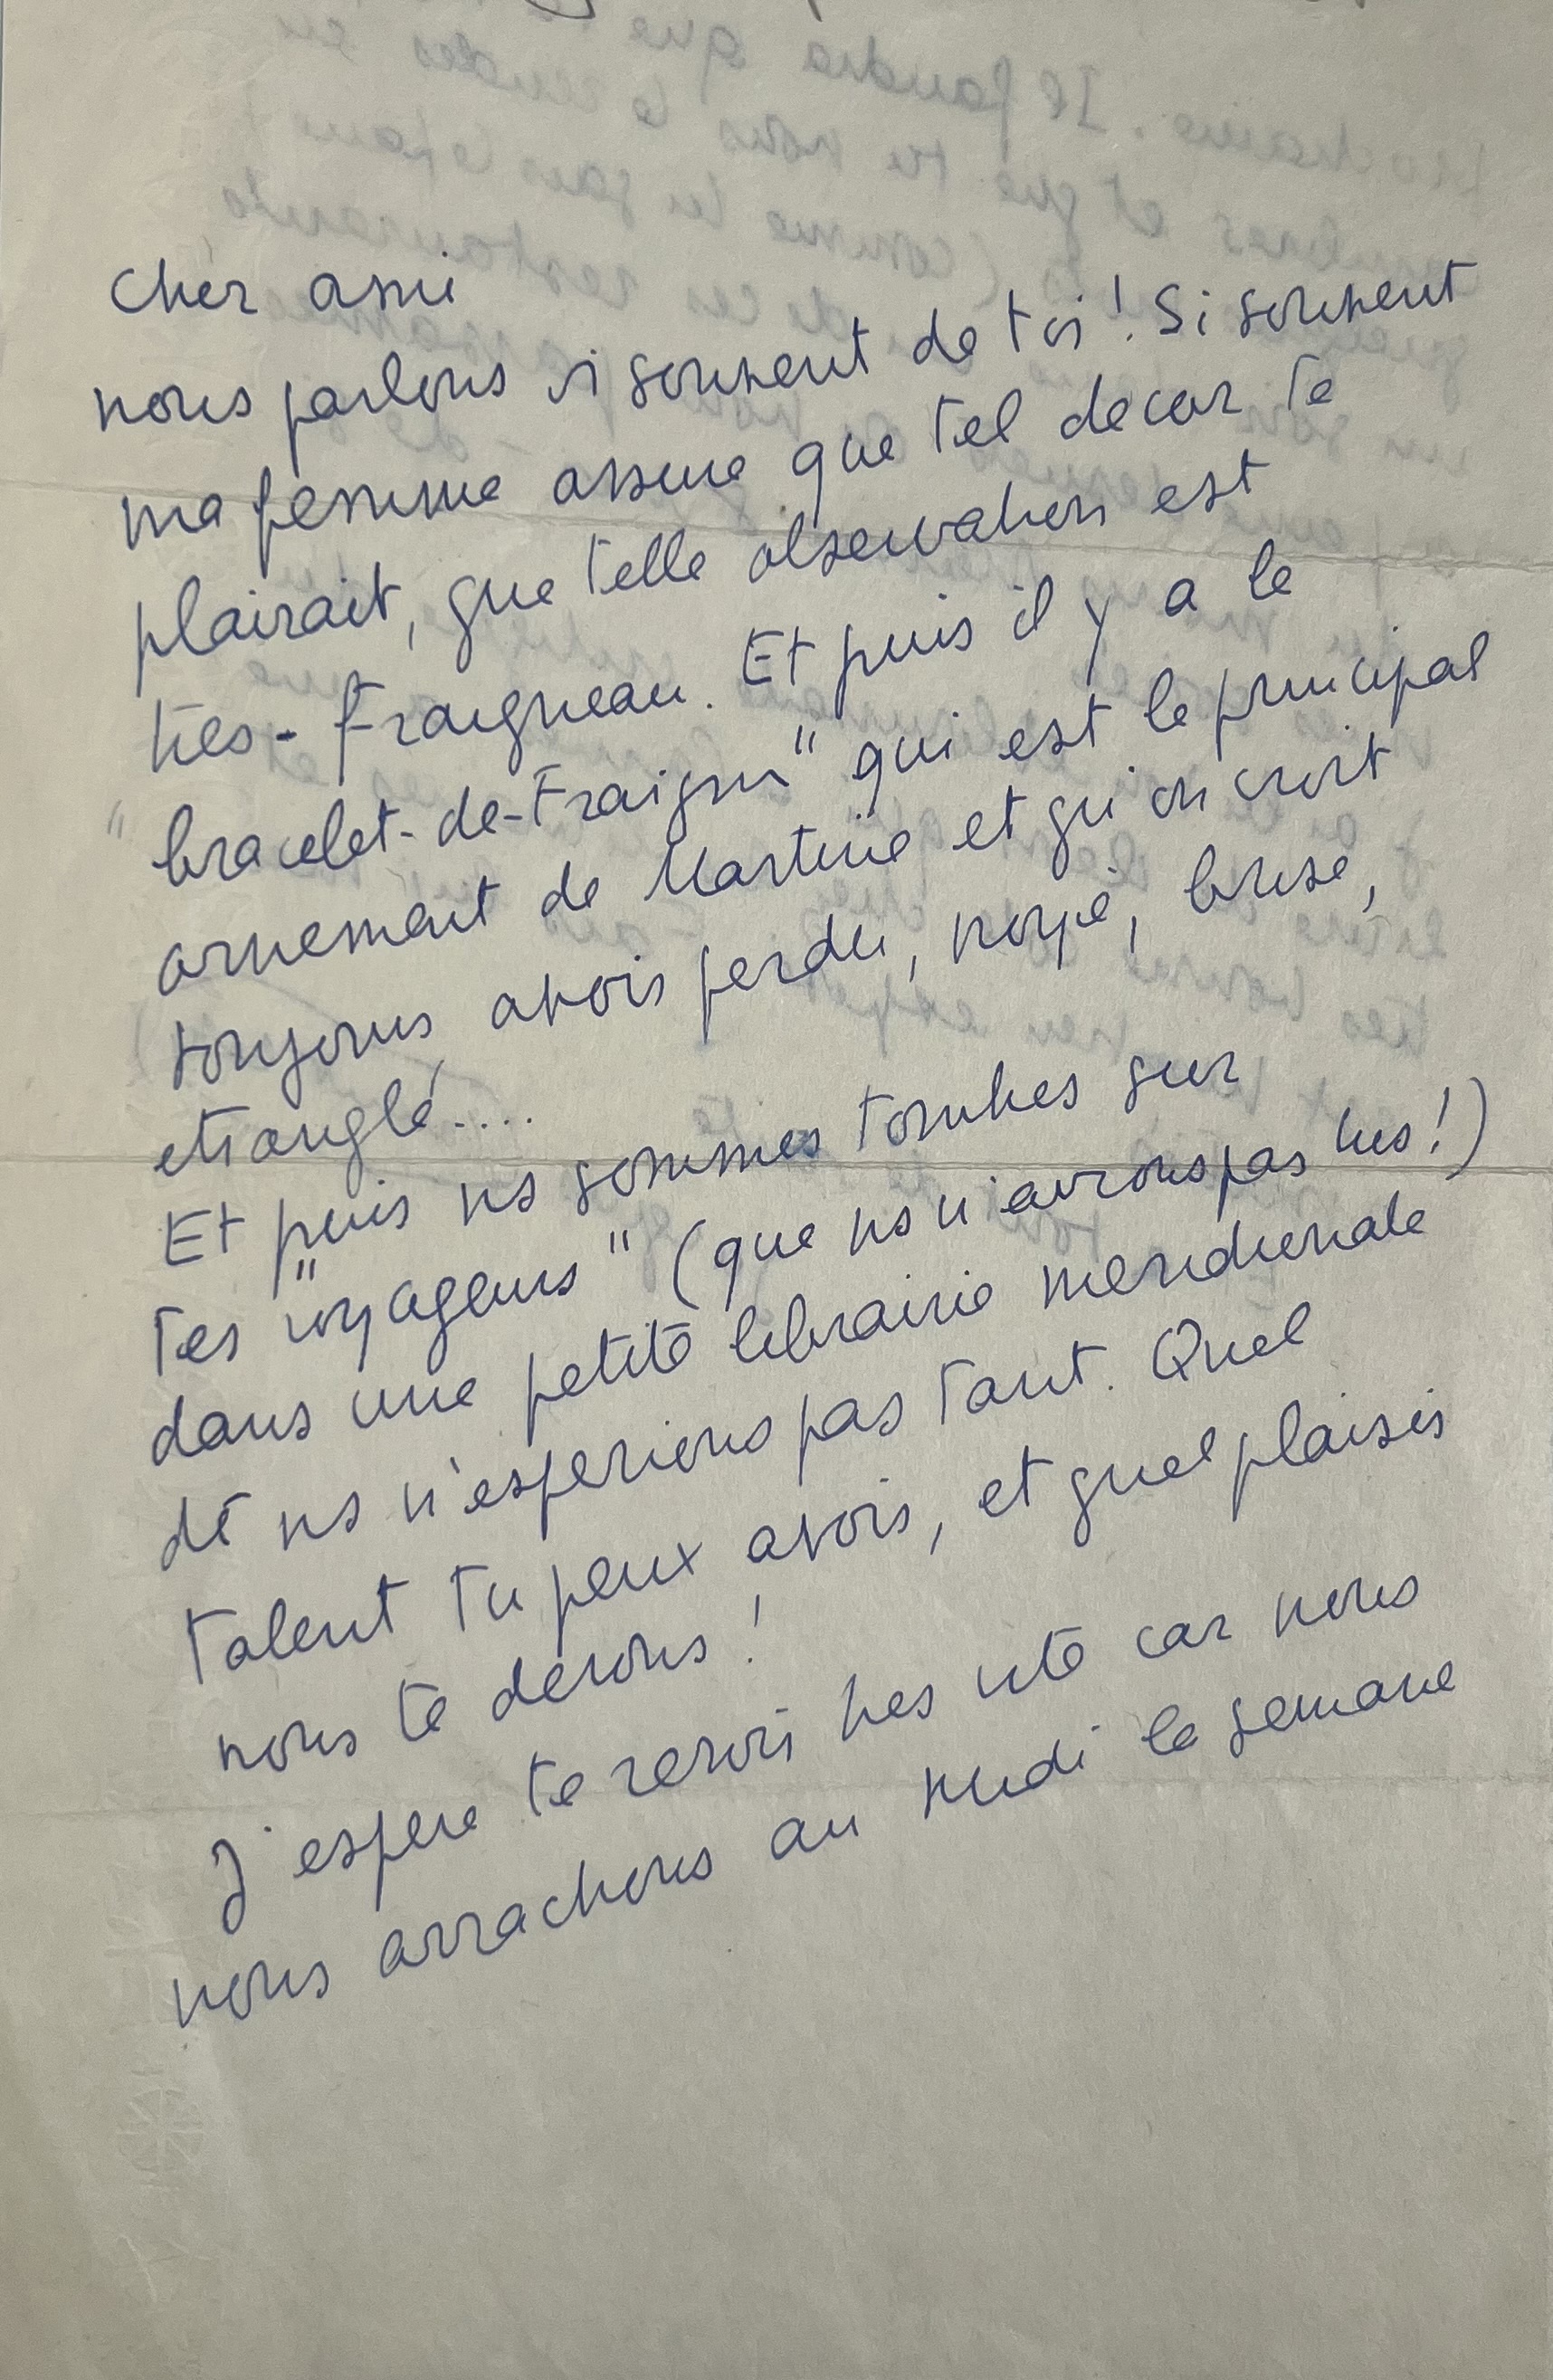 Cher ami
nous parlons si souvent de toi! Si souvent
ma femme assure que tel decor te
plairait, que telle observation est
très-Fraigneau. Et puis il y a le
"bracelet-de-Fraignu" qui est le principal
ornement de Martine et qu'on croit
toujours avoir perdu, noyé, brisé,
etranglé....
Et puis ns sommes tombes sur
tes "voyageurs" (que ns n'avions pas lus!)
dans une petite librairie meridionale
dt ns n'esperions pas tant. Quel
talent tu peux avoir, et quel plaisir
nous te devons!
J'espere te revoir tres vite car nous
nous arrachons au midi la semaine